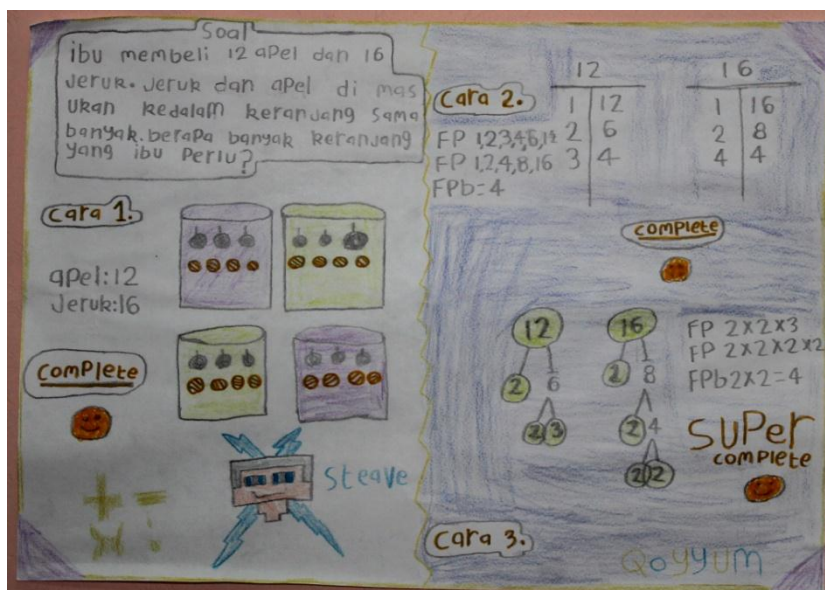 Soal
ibu membeli 12 apel dan 16
Jeruk. Jeruk dan apel di mas
ukan kedalam keranjang sama
banyak. berapa banyak keranjang
yang ibu Perlu?
Cara 1.
apel:12
Jeruk:16
comPlete
Steave
+ -
× :
Cara 2.
FP 1,2,3,4,6,12
FP 1,2,4,8,16
FPb=4
12
1 12
2 6
3 4
16
1 16
2 8
4 4
comPlete
12
2 6
2 3
16
2 8
2 4
2 2
FP 2x2x3
FP 2x2x2x2
FPb 2x2=4
SuPer
comPlete
Cara 3.
Qoyyum